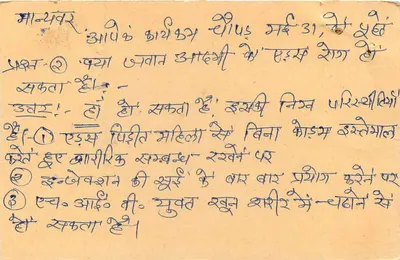 मान्यवर
आपके कार्यक्रम चौपड़ मई 31, से पूछे
प्रश्न - ② क्या जवान आदमी को एड्स रोग हो
सकता है। -
उत्तर! - हाँ हो सकता है, इसकी निम्न परिस्थीतियाँ
है। ① एड्स पिड़ीत महिला से बिना कोडम इस्तेमाल
करते हुए शारीरिक सम्बन्ध रखने पर
② इन्जेक्शन की सुई के बार बार प्रयोग करने पर
③ एच. आई. वी. युक्त खून शरीर में चढ़ाने से
हो सकता है।